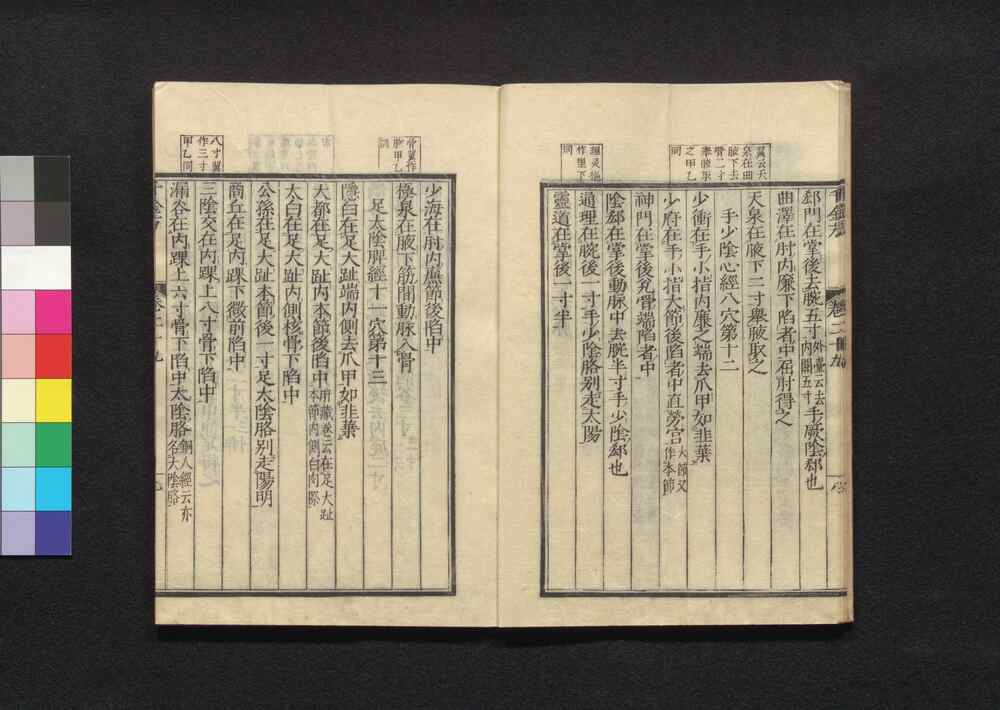 郄門在掌後去腕五寸外臺云去內關五寸手厥陰郄也
曲澤在肘內廉下陷者中屈肘得之
天泉在腋下二寸舉腋取之
手少陰心經八穴第十二
少衝在手小指內廉之端去爪甲如韭葉
少府在手小指大節後陷者中直勞宮大節又作本節
神門在掌後兌骨端陷者中
陰郄在掌後動脉中去腕半寸手少陰郄也
通理在腕後一寸手少陰胳別走太陽
靈道在掌後一寸半
少海在肘內廉節後陷中
極泉在腋下筋間動脉入骨
足太陰脾經十一穴第十三
隱白在足大趾端內側去爪甲如韭葉
大都在足大趾內本節後陷中
本節內側白肉際
太白在足大趾內側核骨下陷中
公孫在足大趾本節後一寸足太陰胳別走陽明
商丘在足內踝下微前陷中
三陰交在內踝上八寸骨下陷中
漏谷在內踝上六寸骨下陷中太陰胳銅人經云亦名太陰胳
八寸翼作三寸甲乙同